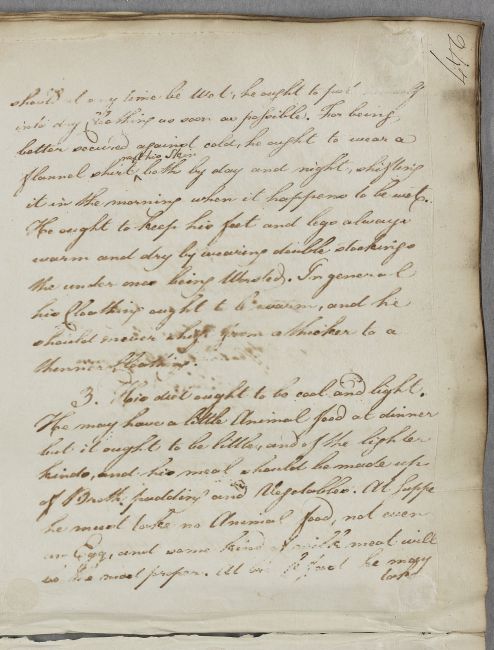 should at any time be Wet, he ought to put himself
into dry Cloathing as soon as possible. For being
better secured against cold, he ought to wear a
next his Skin
flannel shirt both by day and night, shifting
it in the morning when it happens to be wet.
He ought to keep his feet and legs always
warm and dry by wearing double stockings
the under ones being Worsted. In general
his Cloathing ought to be warm, and he
should never shift from a thicker to a
thinner Cloathing.
3. His diet ought to be cool and light.
He may have a little Animal food at dinner
but it ought to be little, and of the lighter
kinds, and his meal should be made up
of Broth, pudding and Vegetables. At Suppe
he must take no Animal food, not even
an Egg, and some kind of milk meat will
be the most proper. At he may
take